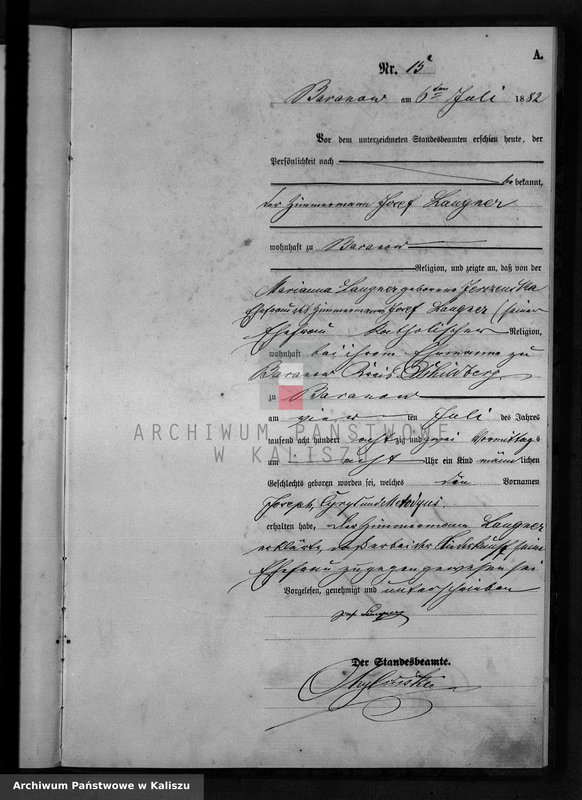 A.
Nr. 15
Baranow am 6ten Juli 1882
Vor dem unterzeichneten Standesbeamten erschien heute, der
Persönlichkeit nach
bekannt,
der Zimmermann Josef Laugner
wohnhaft zu Baranow
Religion, und zeigte an, daß von der
Marianna Laugner geborene
Ehefrau des Zimmermanns Josef Laugner (seiner
Ehefrau katholischer Religion,
wohnhaft bei ihrem Ehemanne zu
Baranow Kreis Schildberg
zu Baranow
am ten Juli des Jahres
tausend acht hundert achtzig und zwei Vormittags
um acht Uhr ein Kind männlichen
Geschlechts geboren worden sei, welches den Vornamen
Joseph, Cyryl und Metodyus
erhalten habe. Der Zimmermann Laugner
erklärte, daß er bei der Niederkunft seiner
Ehefrau zugegen gewesen sei
Vorgelesen, genehmigt und unterschrieben
Josef Laugner
Der Standesbeamte.
ARCHIWUM PAŃSTWOWE
W KALISZU
Archiwum Państwowe w Kaliszu